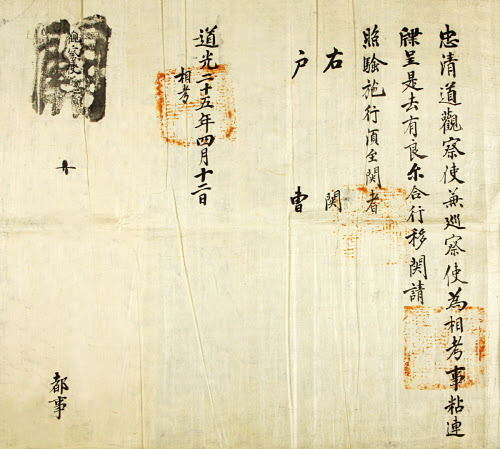 忠清道觀察使兼巡察使為相考事粘連
牒呈是去有良尔合行移関請
照驗施行須至関者
右関
戶曹
道光二十五年四月十二日
相考
觀察使
都事